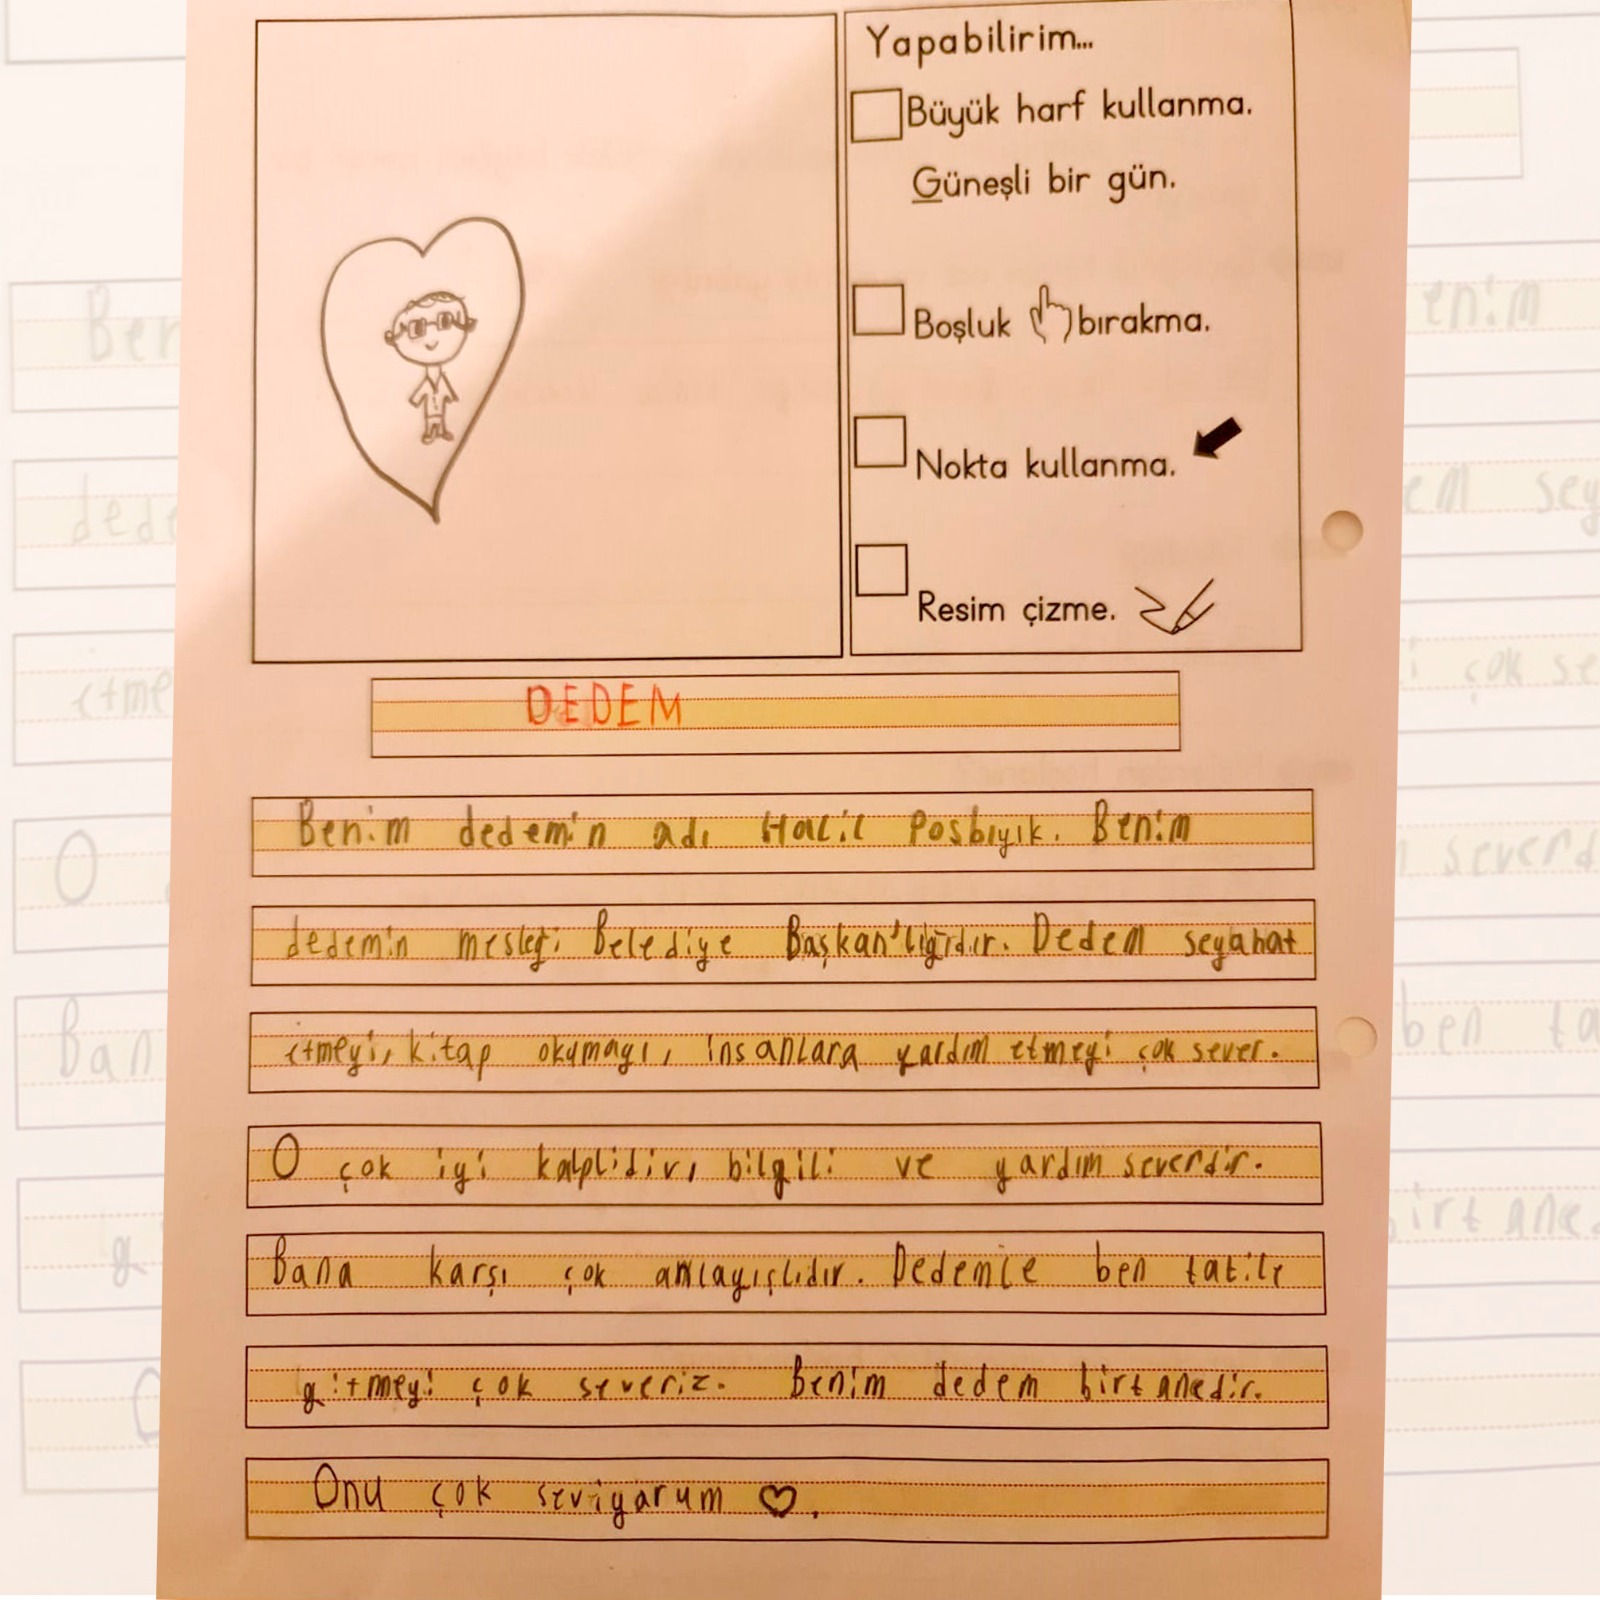 Yapabilirim...
Büyük harf kullanma.
Güneşli bir gün.
Boşluk bırakma.
Nokta kullanma.
Resim çizme.
DEDEM
Benim dedemin adı Halil Posbıyık. Benim
dedemin mesleği Belediye Başkan'lığıdır. Dedem seyahat
etmeyi, kitap okumayı, insanlara yardım etmeyi çok sever.
O çok iyi kalplidir, bilgili ve yardım severdir.
Bana karşı çok anlayışlıdır. Dedemle ben tatile
gitmeyi çok severiz. Benim dedem birtanedir.
Onu çok seviyorum ♡.